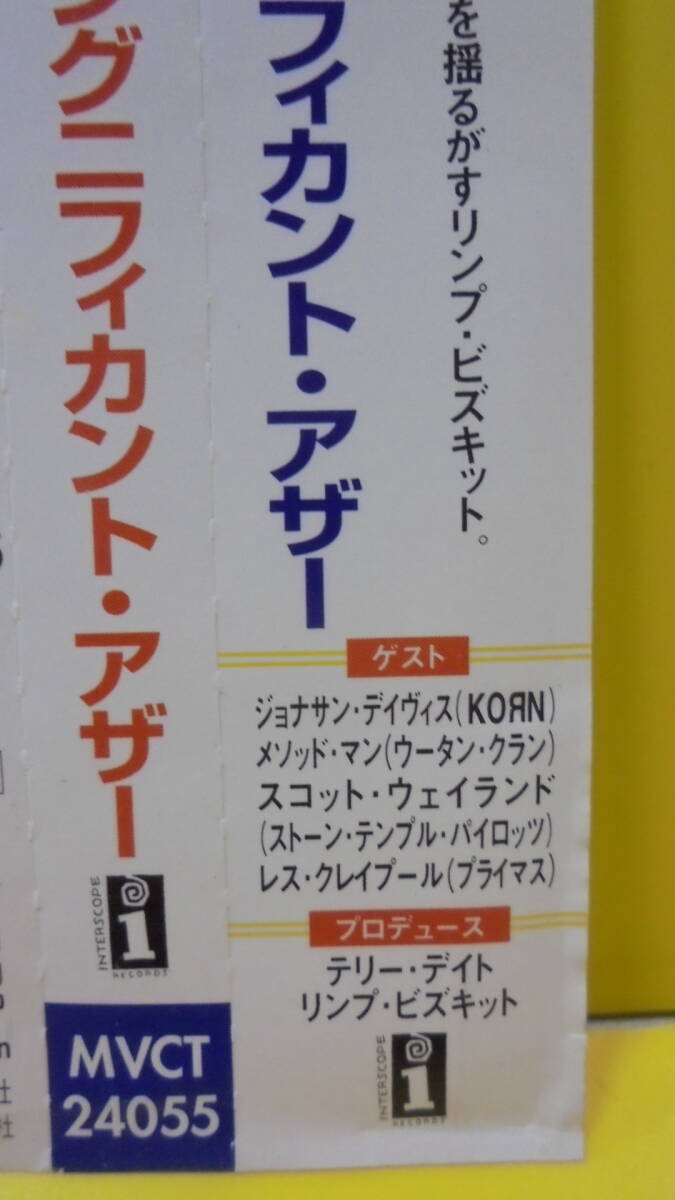 を揺るがすリンプ・ビズキット。
フィカント・アザー
ゲスト
ジョナサン・デイヴィス(KOЯN)
メソッド・マン(ウータン・クラン)
スコット・ウェイランド
(ストーン・テンプル・パイロッツ)
レス・クレイプール(プライマス)
プロデュース
テリー・デイト
リンプ・ビズキット
INTERSCOPE
i
RECORDS
グニフィカント・アザー
INTERSCOPE
i
RECORDS
MVCT
24055
社
社